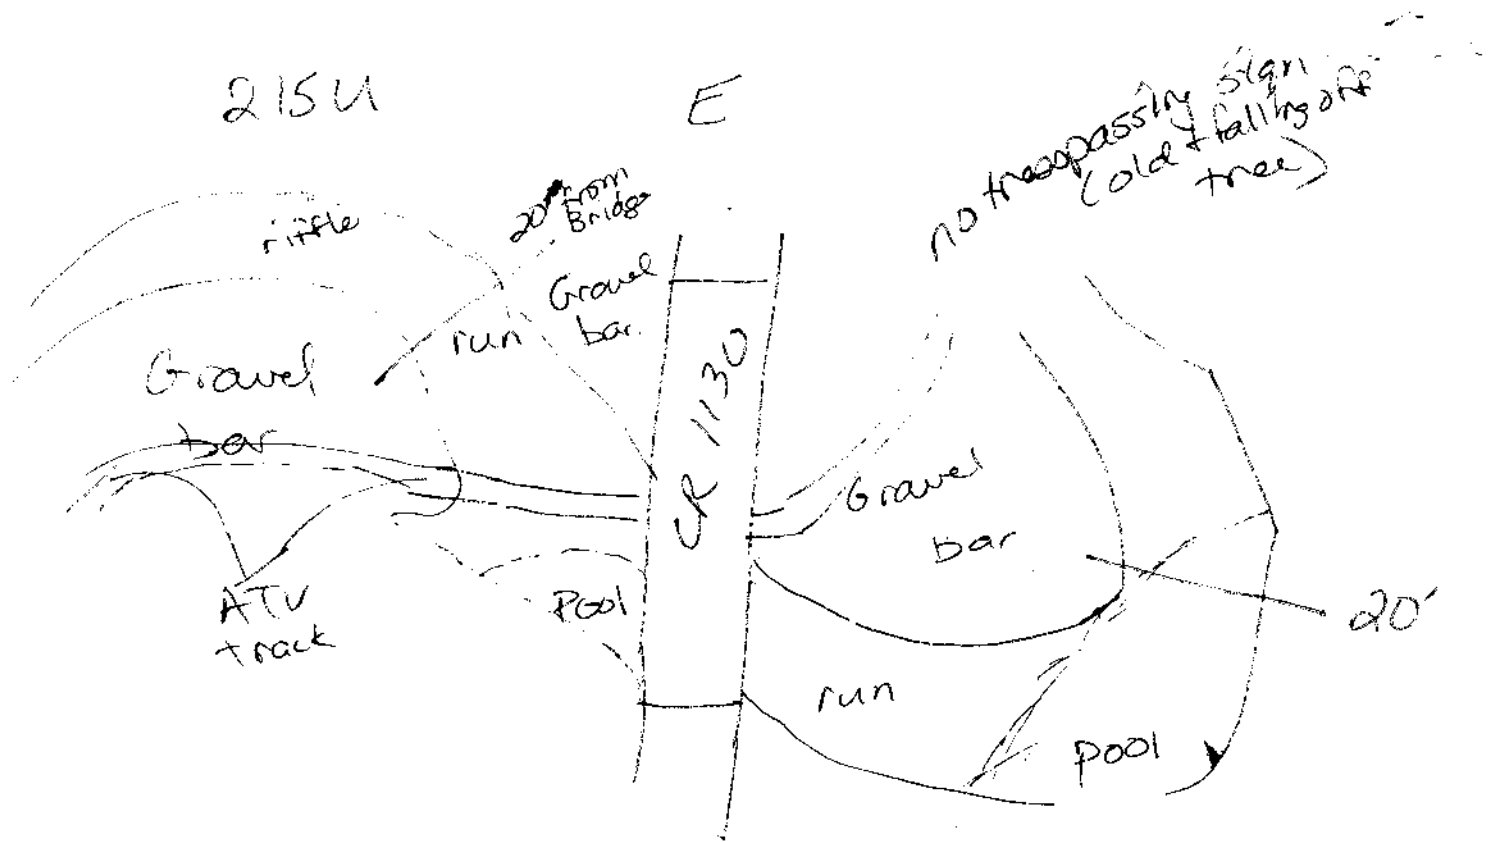 215U
E
no trespassing sign
(old + falling off
tree)
riffle
20' from
Bridge
Gravel
bar
run
Gravel
bar
CR 1130
Gravel
bar
ATV
track
Pool
20'
run
pool